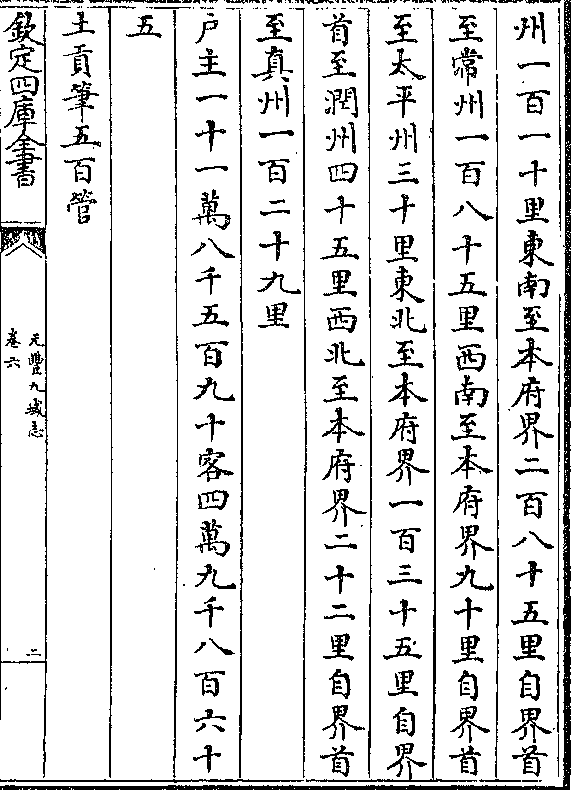 州一百一十里東南至本府界二百八十五里自界首
至常州一百八十五里西南至本府界九十里自界首
至太平州三十里東北至本府界一百三十五里自界
首至潤州四十五里西北至本府界二十二里自界首
至真州一百二十九里
户主一十一萬八千五百九十客四萬九千八百六十
五
土貢筆五百管
欽定四庫全書
元豐九域志
卷六
二